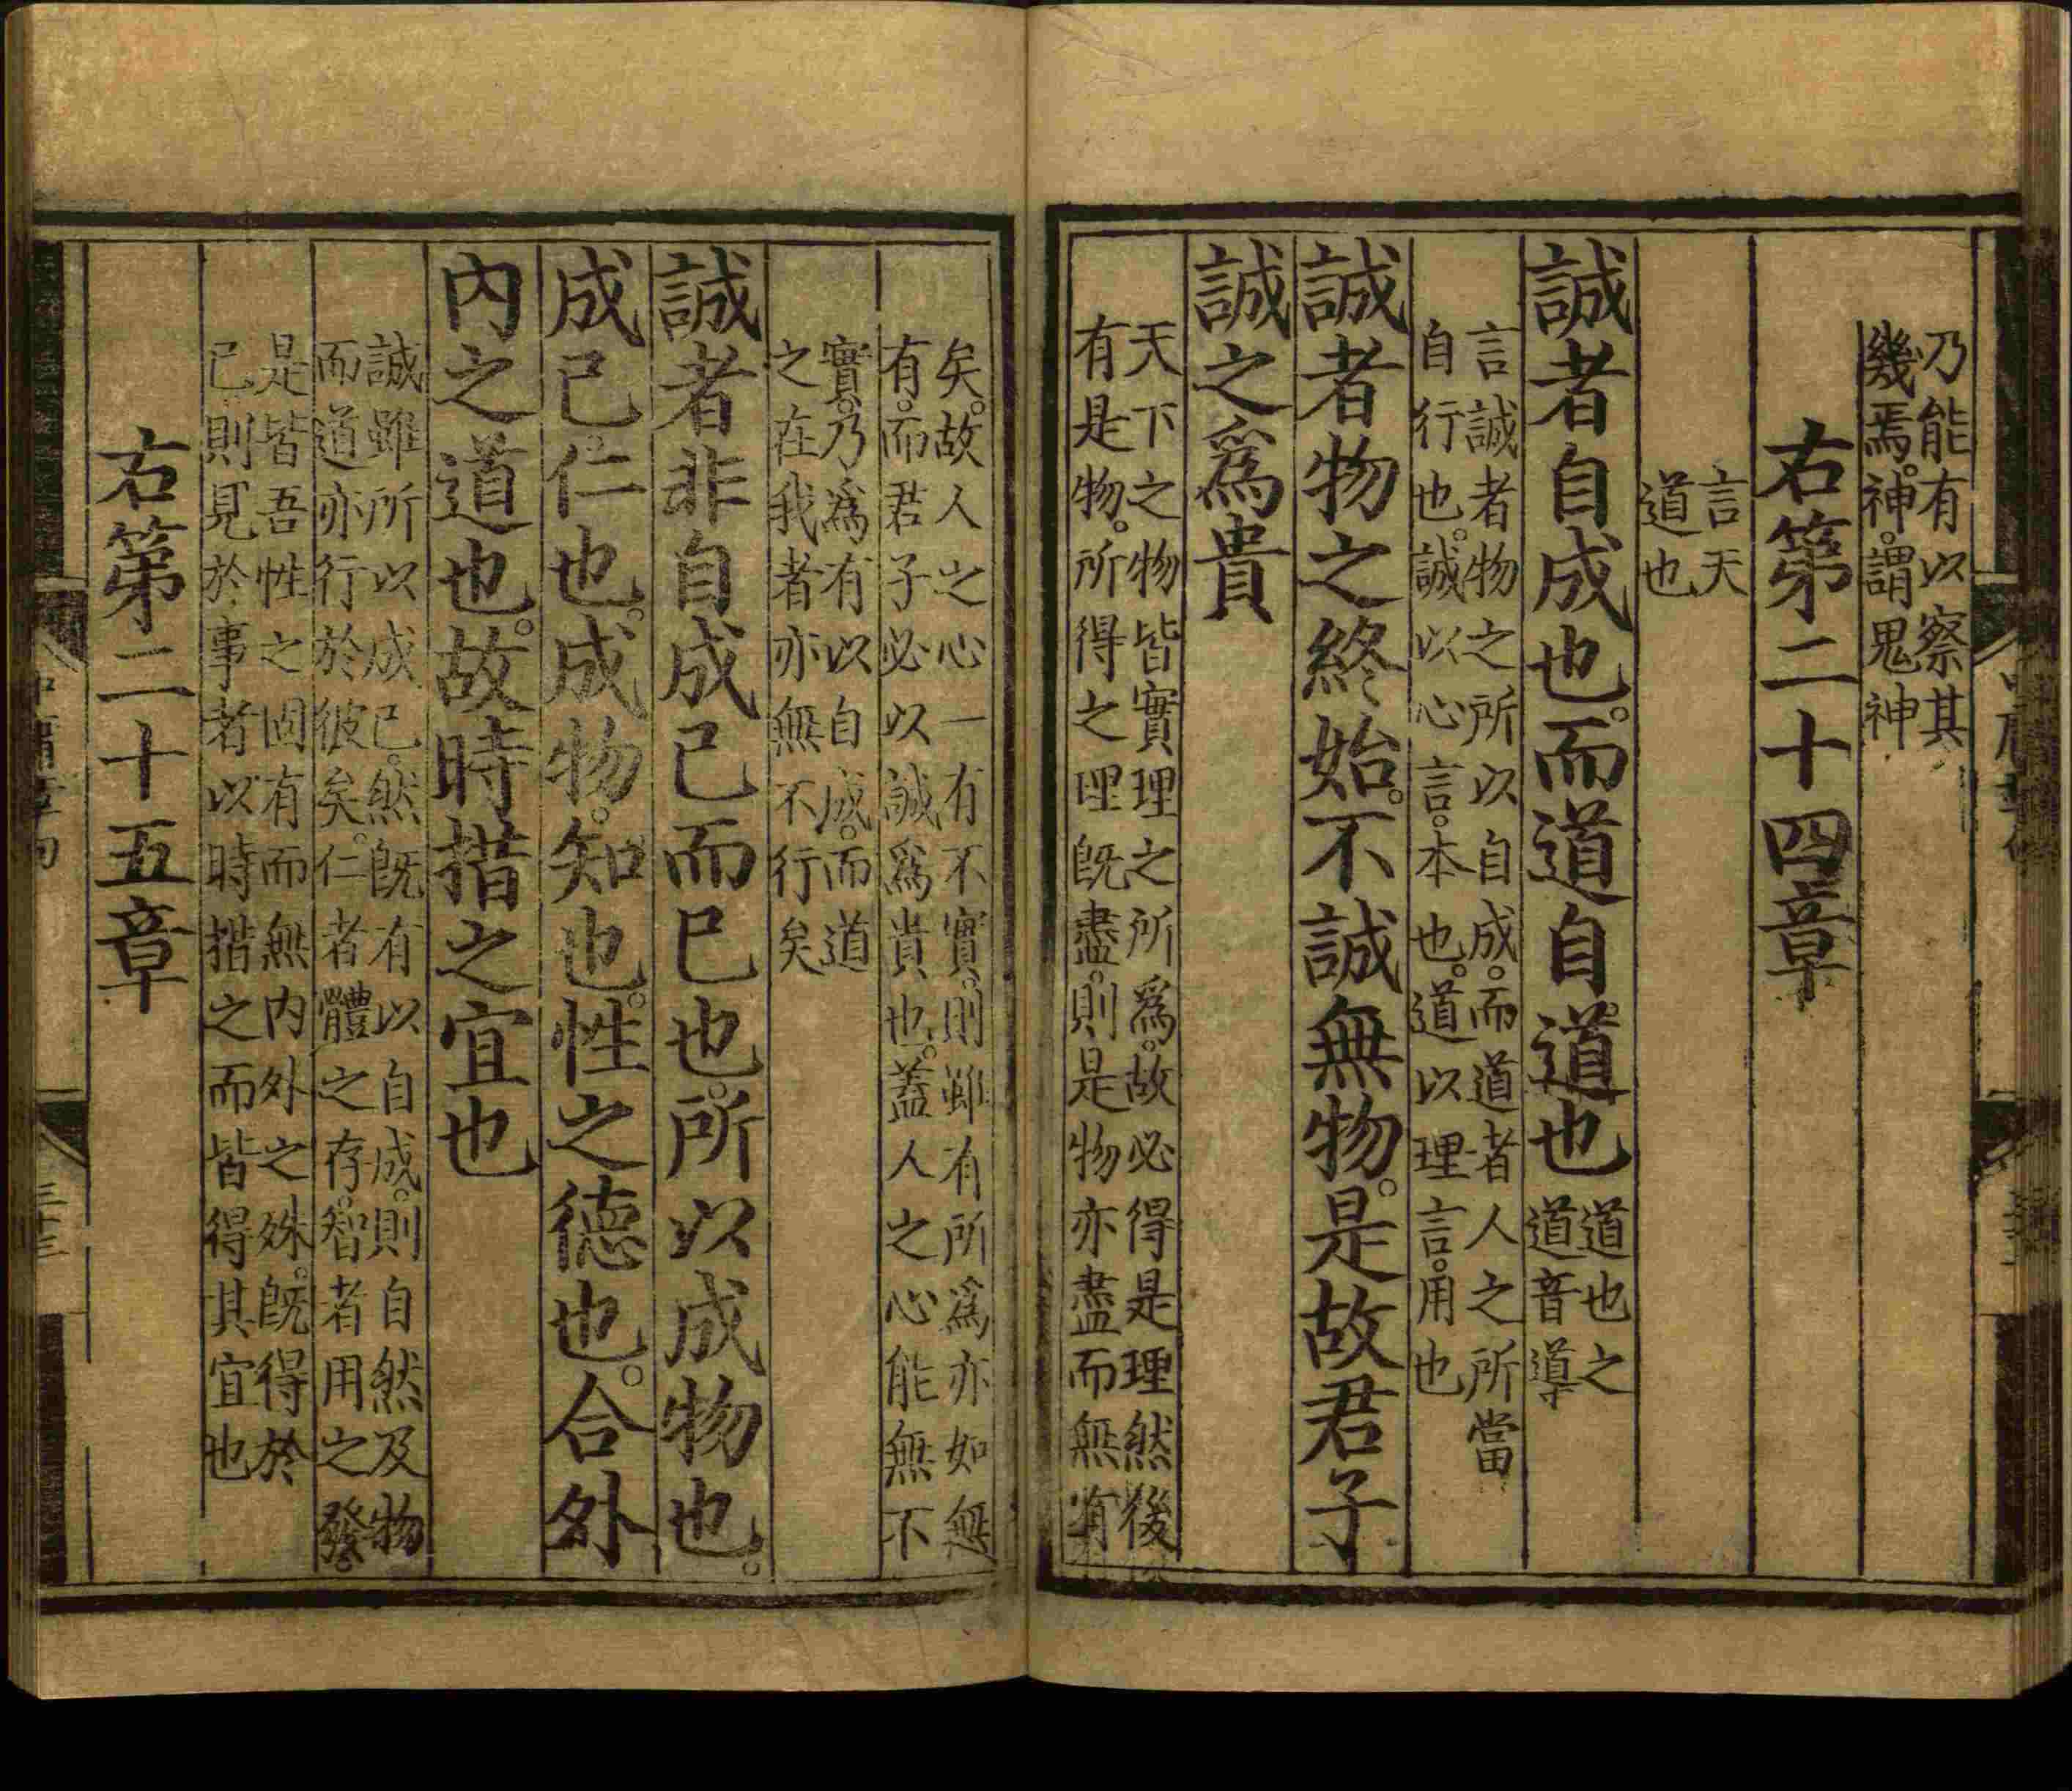 乃能有以察其
幾焉。神。謂鬼神
右第二十四章
言天
道也
誠者自成也。而道自道也
道也之
道音導
言誠者物之所以自成。而道者人之所當
自行也。誠以心言。本也。道以理言。用也
誠者物之終始。不誠無物。是故君子
誠之爲貴
天下之物皆實理之所爲。故必得是理然後
有是物。所得之理旣盡。則是物亦盡而無有
矣。故人之心一有不實。則雖有所爲亦如無
有。而君子必以誠爲貴也。蓋人之心能無不
實。乃爲有以自成。而道
之在我者亦無不行矣
誠者非自成己而已也。所以成物也。
成己。仁也。成物。知也。性之德也。合外
內之道也。故時措之宜也
誠雖所以成己。然旣有以自成。則自然及物
而道亦行於彼矣。仁者體之存。智者用之發。
是皆吾性之固有而無內外之殊。旣得於
己則見於事者以時措之而皆得其宜也
右第二十五章
三十三